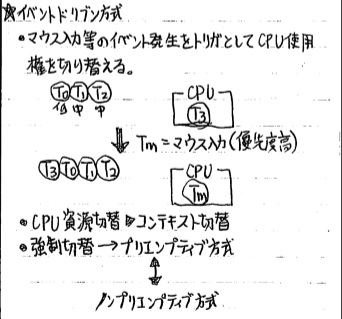 ☆イベントドリブン方式
・マウス入力等のイベント発生をトリガとしてCPU使用
権を切り替える。
T0 T1 T2 CPU
低 中 中 T3
Tm=マウス入力(優先度高)
T3 T0 T1 T2 CPU
Tm
・CPU資源切替▷コンテキスト切替
・強制切替→プリエンプティブ方式
ノンプリエンプティブ方式